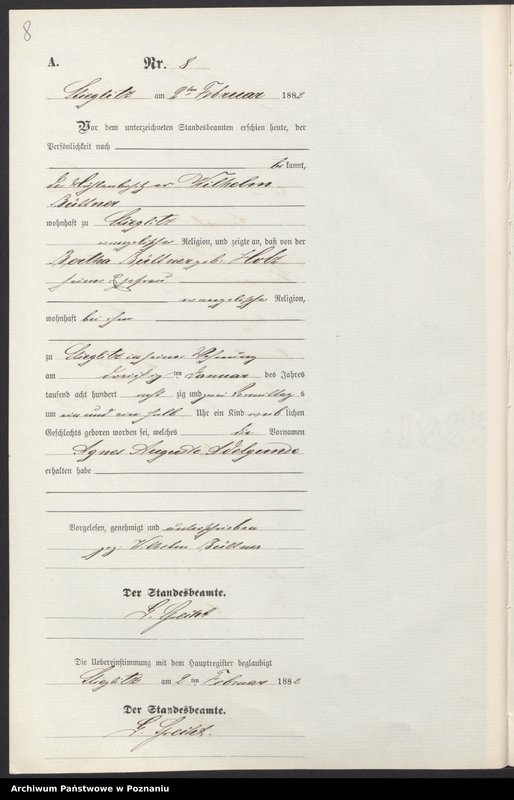 8
A. Nr. 8
Stieglitz am 2ten Februar 1882
Vor dem unterzeichneten Standesbeamten erschien heute, der
Persönlichkeit nach
bekannt,
Wilhelm
Büttner
wohnhaft zu Stieglitz
evangelischer Religion, und zeigte an, daß von der
Bertha Büttner geb. Hotz
seiner Ehefrau
evangelischer Religion,
wohnhaft bei ihm
zu Stieglitz in seiner Wohnung
am dreißigten Januar des Jahres
tausend acht hundert achtzig und zwei Vormittags
um ein und ein halb Uhr ein Kind weiblichen
Geschlechts geboren worden sei, welches die Vornamen
Agnes Auguste Adelgunde
erhalten habe
Vorgelesen, genehmigt und unterschrieben
gez. Wilhelm Büttner
Der Standesbeamte.
Die Uebereinstimmung mit dem Hauptregister beglaubigt
Stieglitz am 2ten Februar 1882
Der Standesbeamte.
Archiwum Państwowe w Poznaniu